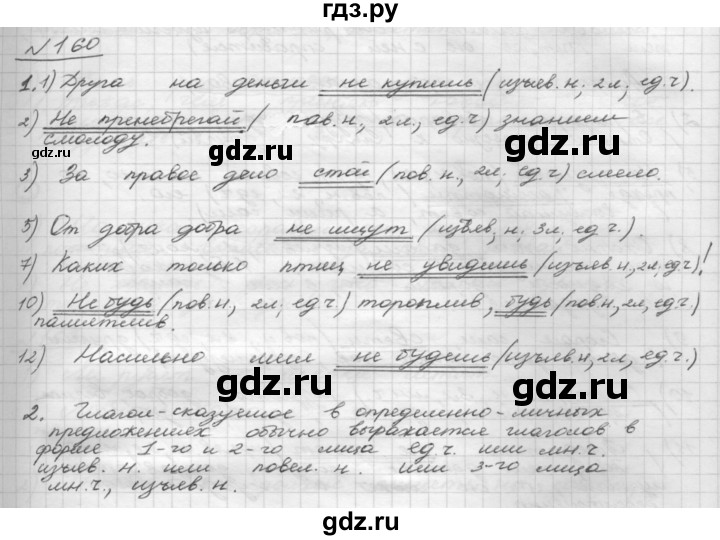 гдз.ру
№160
1.1) Друга на деньги не купишь (изъяв.н; 2л; ед.ч).
2) Не пренебрегай (пов.н, 2л; ед.ч) знанием
смолоду.
gdz.ru
gdz.ru
3) За правое дело стой (пов.н., 2л; ед.ч) смело.
5) От добра добра не ищут (изъяв, н; 3л, ед.ч).
7) Каких только птиц не увидишь (изъяв.н, 2л, ед.ч)!
10) Не будь (пов.н, 2л; ед.ч) тороплив, будь (пов.н, 2л, ед.ч)
памятлив.
gdz.ru
12) Насильно мил не будешь (изъяв.н, 2л, ед.ч)
gdz.ru
gdz.ru
2. Глагол-сказуемое в определенно-личных
предложениях обычно выражается глаголов в
форме 1-го и 2-го лица ед.ч. или мн.ч.
изъяв. н. или повел. н. или 3-го лица
мн.ч., изъяв.н.
gdz.ru
gdz.ru
gdz.ru